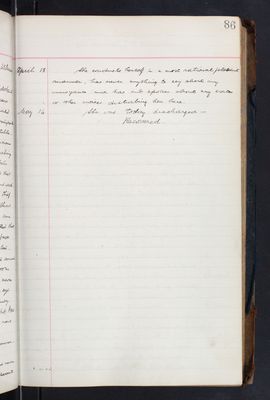 86
April 18 She conducts herself in a most rational pleasant
manner, has never anything to say about any
annoyances and has not spoken about any voices
or other noises disturbing her here.
May 14 She was to-day discharged —
Recovered.